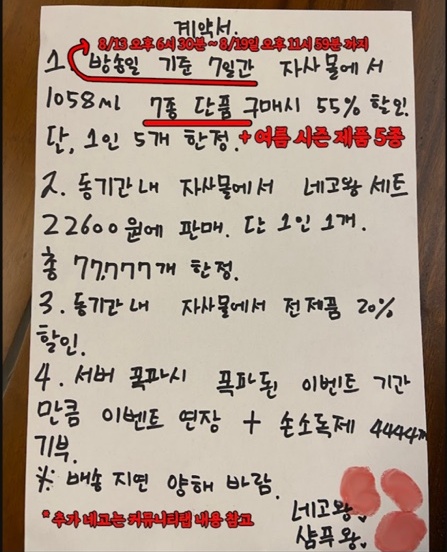 계약서.
8/13 오후 6시 30분 ~ 8/19일 오후 11시 59분 까지
1. 방송일 기준 7일간 자사몰에서
1058ml 7종 단품 구매시 55% 할인.
단, 1인 5개 한정. + 여름 시즌 제품 5종
2. 동기간내 자사몰에서 네고왕 세트
22600원에 판매. 단 1인 1개.
총 77,777개 한정.
3. 동기간내 자사몰에서 전제품 20%
할인.
4. 서버 폭파시 폭파된 이벤트 기간
만큼 이벤트 연장 + 손소독제 4444개
기부.
※ 배송 지연 양해 바람.
* 추가 네고는 커뮤니티탭 내용 참고
네고왕
샴푸왕